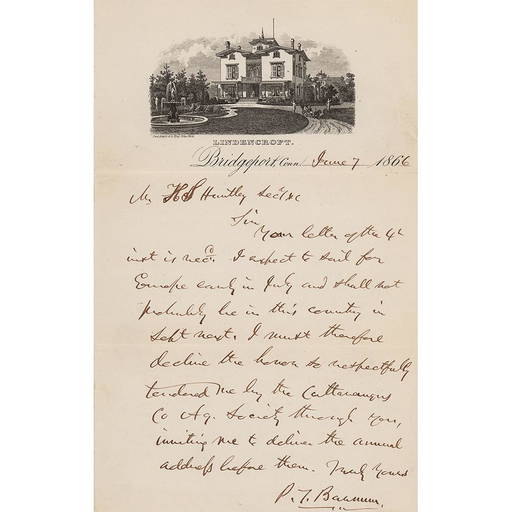 LINDENCROFT.
Bridgeport, Conn. June 7 1866
Mr H S Huntley Secy &c
Sir
Your letter of the 4th
inst is recd. I expect to sail for
Europe early in July and shall not
probably be in this country in
Sept next. I must therefore
decline the honor so respectfully
tendered me by the Cattaraugus
Co Ag. Society through you,
inviting me to deliver the annual
address before them. Truly Yours
P. T. Barnum